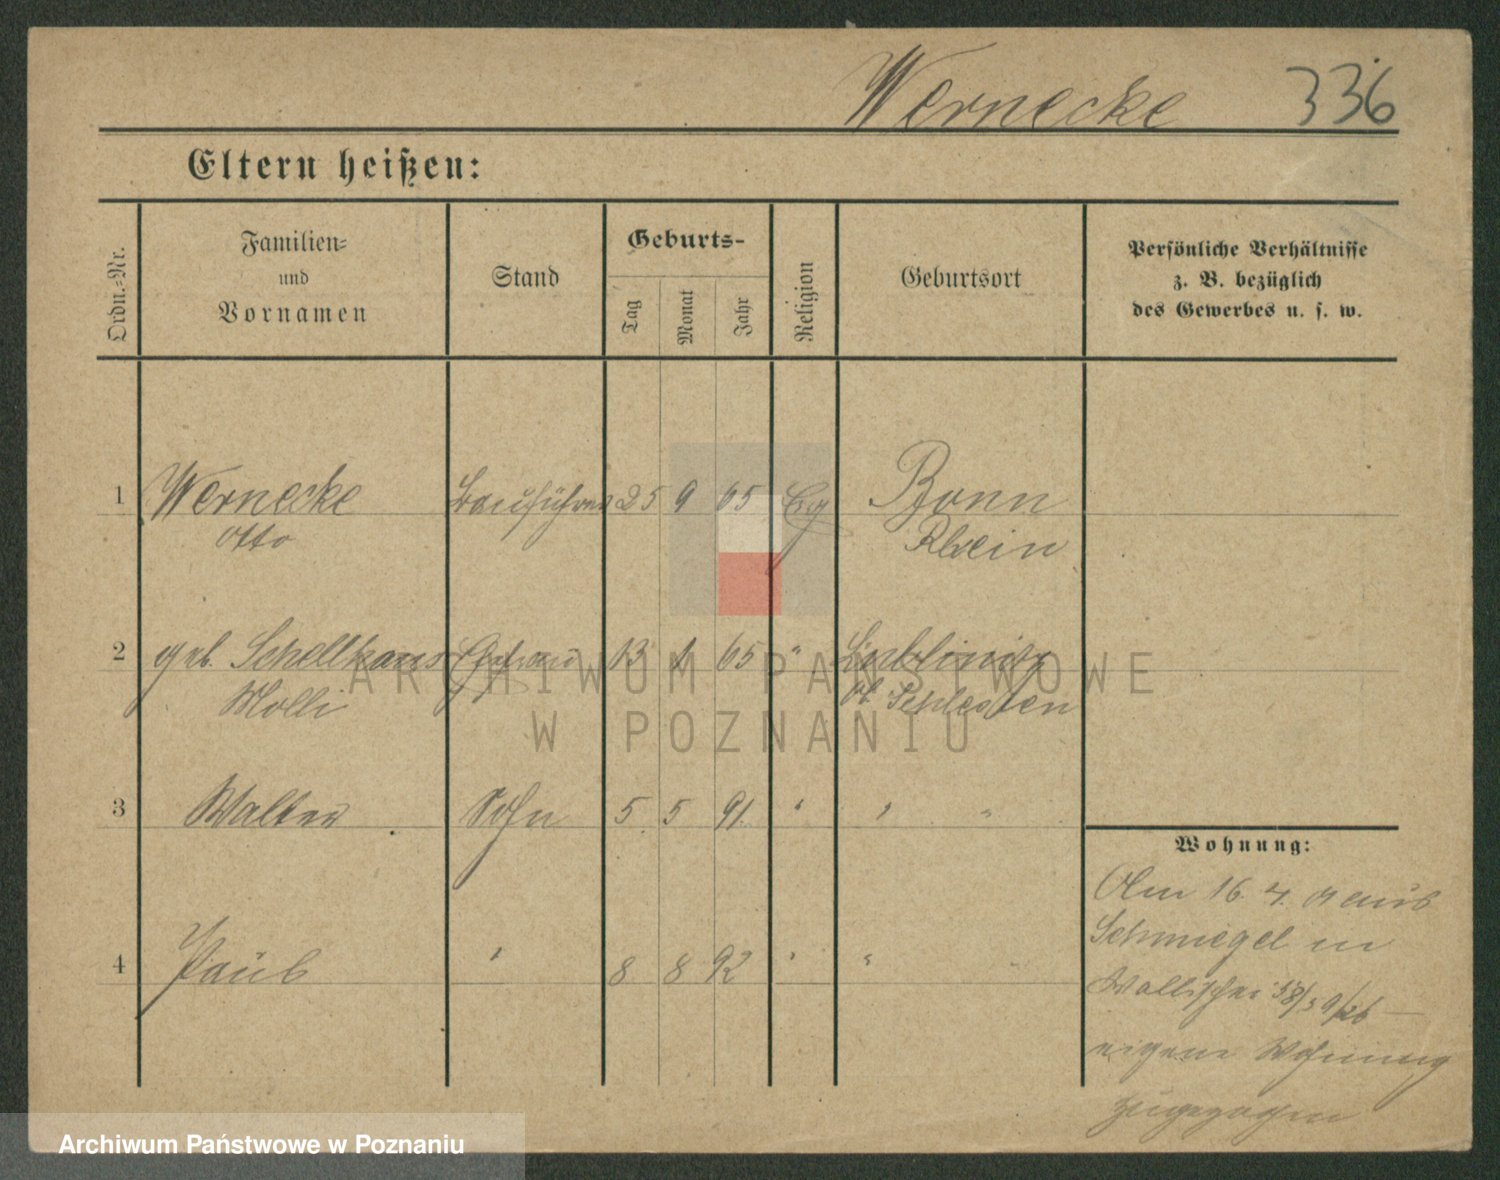 Wernecke 336
Eltern heißen:
Ordn.-Nr.
Familien-
und
Vornamen
Stand
Geburts-
Tag
Monat
Jahr
Religion
Geburtsort
Persönliche Verhältnisse
z. B. bezüglich
des Gewerbes u. s. w.
1 Wernecke Bauführer 25 9 65 Eg Bonn
Otto Rhein
2 geb. Ehefrau 13 1 65 " Lublinitz
Molli Ob Schlesien
ARCHIWUM PAŃSTWOWE
W POZNANIU
3 Walter Sohn 5 5 91 " " "
Wohnung:
4 Paul " 8 8 92 " " "
Am 16. 4. aus
Schmiegel in
Wallischei
eigene Wohnung
zugezogen
Archiwum Państwowe w Poznaniu